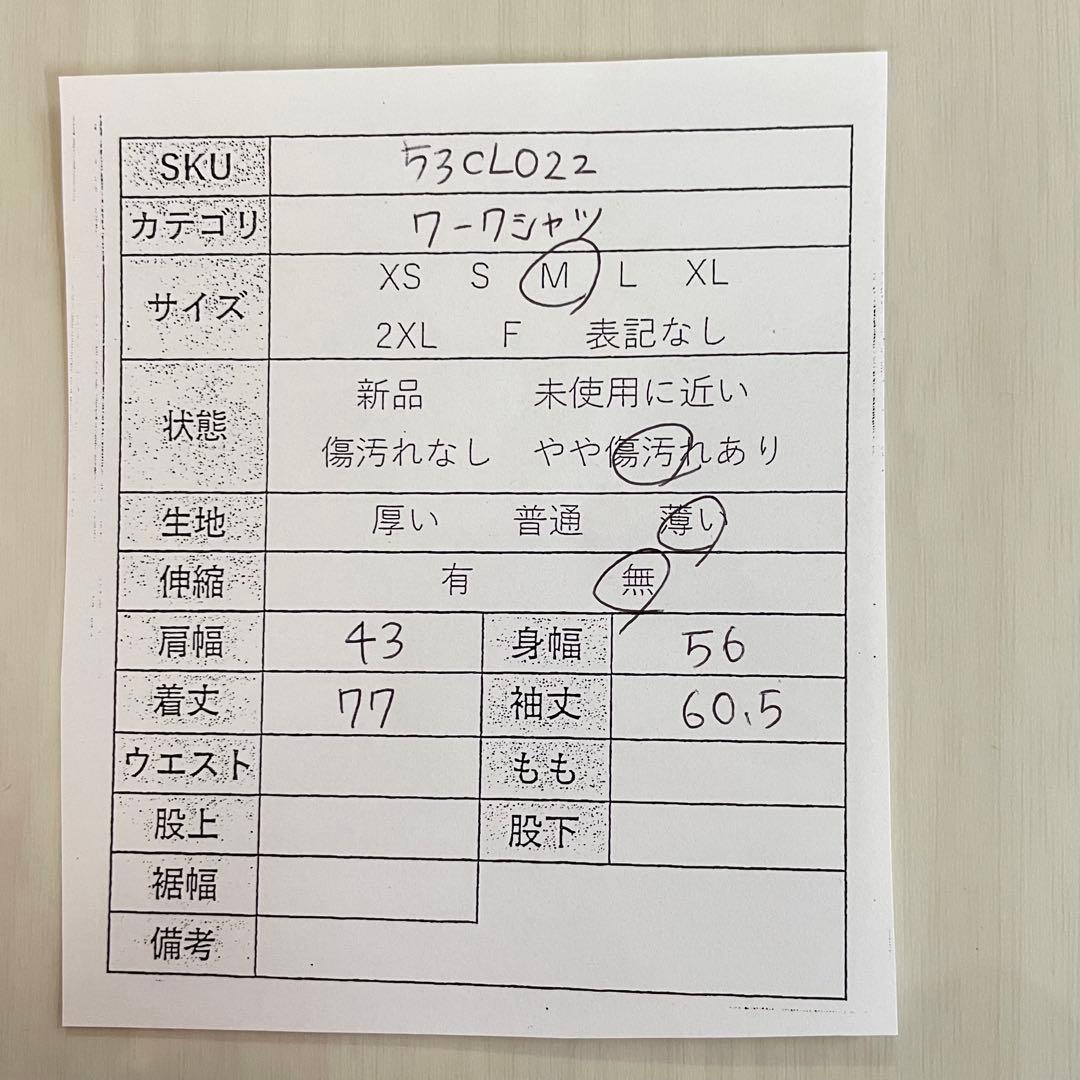 SKU 53CL022
カテゴリ ワークシャツ
サイズ XS S M L XL
2XL F 表記なし
状態 新品 未使用に近い
傷汚れなし やや傷汚れあり
生地 厚い 普通 薄い
伸縮 有 無
肩幅 43 身幅 56
着丈 77 袖丈 60.5
ウエスト もも
股上 股下
裾幅
備考